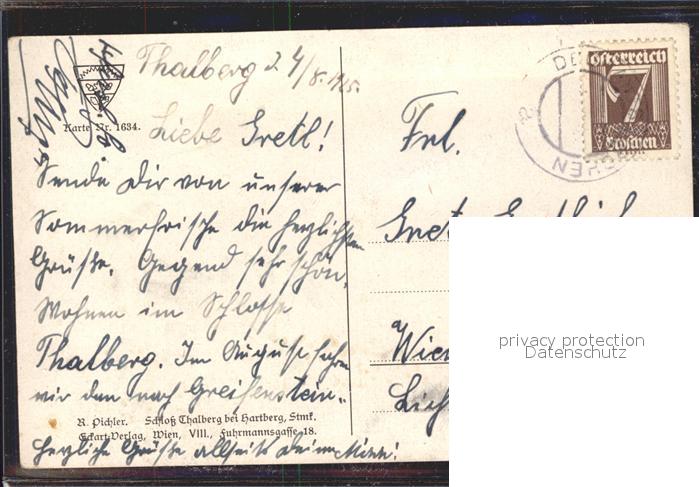 Thalberg 24/8. 1925.
Karte Nr. 1634.
Liebe Gretl!
Sende Dir von unserer
Sommerfrische die herzlichsten
Grüße. Gegend sehr schön.
Wohnen im Schlosse
Thalberg. Im August fahren
wir dan nach Greifenstein.
R. Pichler. Schloß Thalberg bei Hartberg, Stmk.
Eckart-Verlag, Wien, VIII., Fuhrmannsgasse 18.
herzliche Grüße allseits deine Minni!
Österreich
7
Groschen
DE
CHEN
Frl.
Wien
privacy protection
Datenschutz